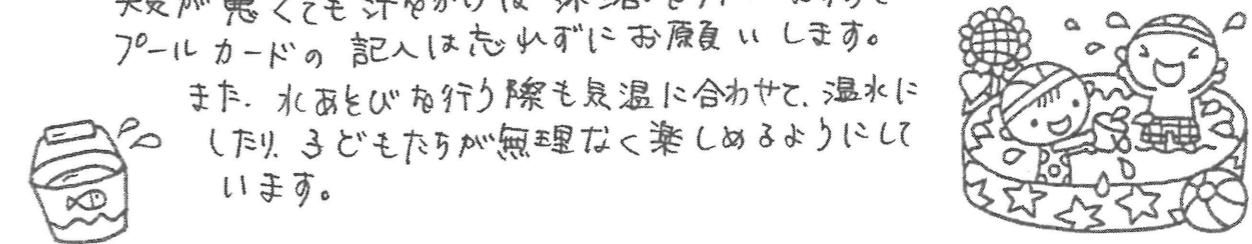 天気が悪くても汗をかけば
プールカードの記入は忘れずにお願いします。
また、水あそびを行う際も気温に合わせて、温水に
したり、子どもたちが無理なく楽しめるようにして
います。